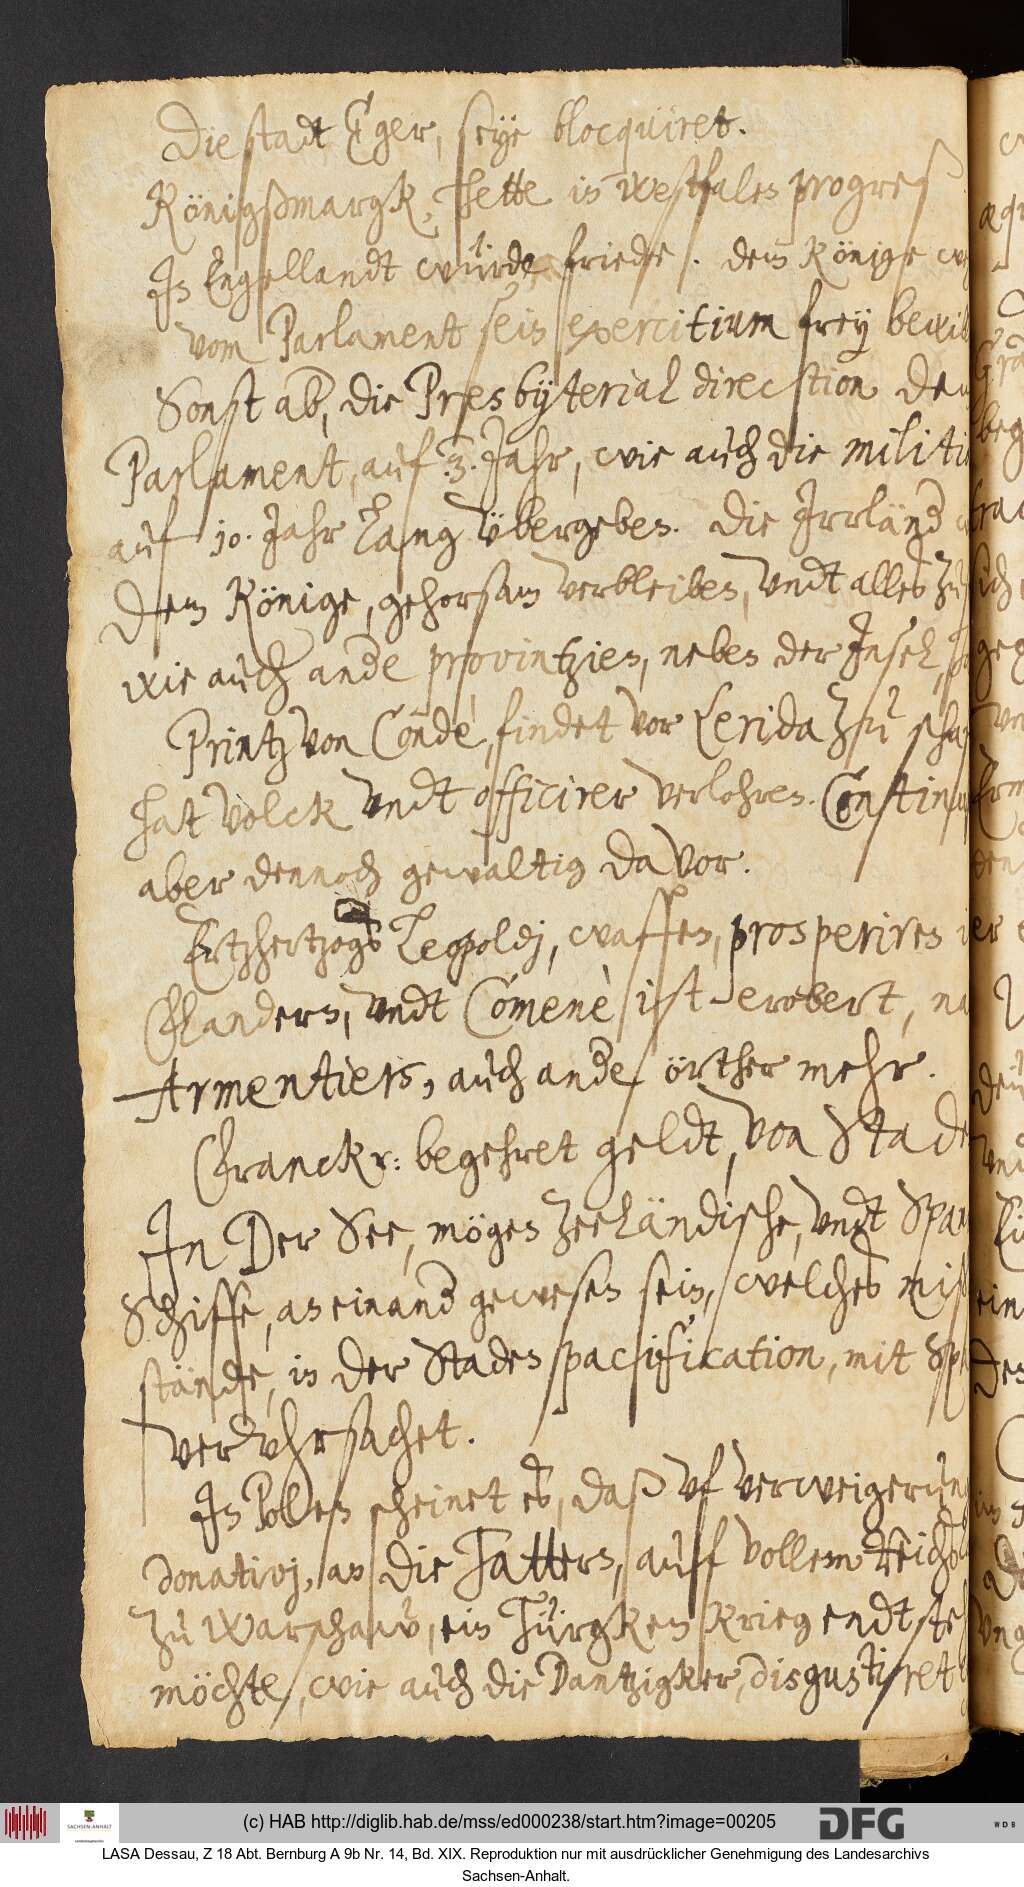 Die stadt Eger, seye blocquiret.
Königsmargk, hette in Westfalen progreß
In Engellandt würde friede. dem Könige
vom Parlament sein exercitium frey
Sonst ab, die Presbyterial direction
Parlament, auf 3. Jahr, wie auch die
auf 10. Jahr lang übergeben. Die Irrländ
dem Könige, gehorsam verbleiben, undt alles
wie auch ande provintzien, neben der Insel,
Printz von Condè, findet vor Lerida zu
hat volck undt officirer verlohren.
aber dennoch gewaltig davor.
Ertzhertzogs Leopoldj, waffen, prosperiren
Flandern, undt Comenè ist erobert,
Armentiers, auch ande örther mehr.
Franckr: begehret geldt, von
In der See, mögen Zeeländische, undt
Schiffe, an einand gewesen sein, welches
stände, in der Staden pacification, mit
veruhrsachet.
In Polen scheinet es, daß uf
donativj, an die Tattern, auff vollem
zu Warschaw, ein Türgken Krieg
möchte, wie auch die Dantzigker, disgustiret
(c) HAB http://diglib.hab.de/mss/ed000238/start.htm?image=00205
SACHSEN-ANHALT
DFG
WDB
LASA Dessau, Z 18 Abt. Bernburg A 9b Nr. 14, Bd. XIX. Reproduktion nur mit ausdrücklicher Genehmigung des Landesarchivs
Sachsen-Anhalt.